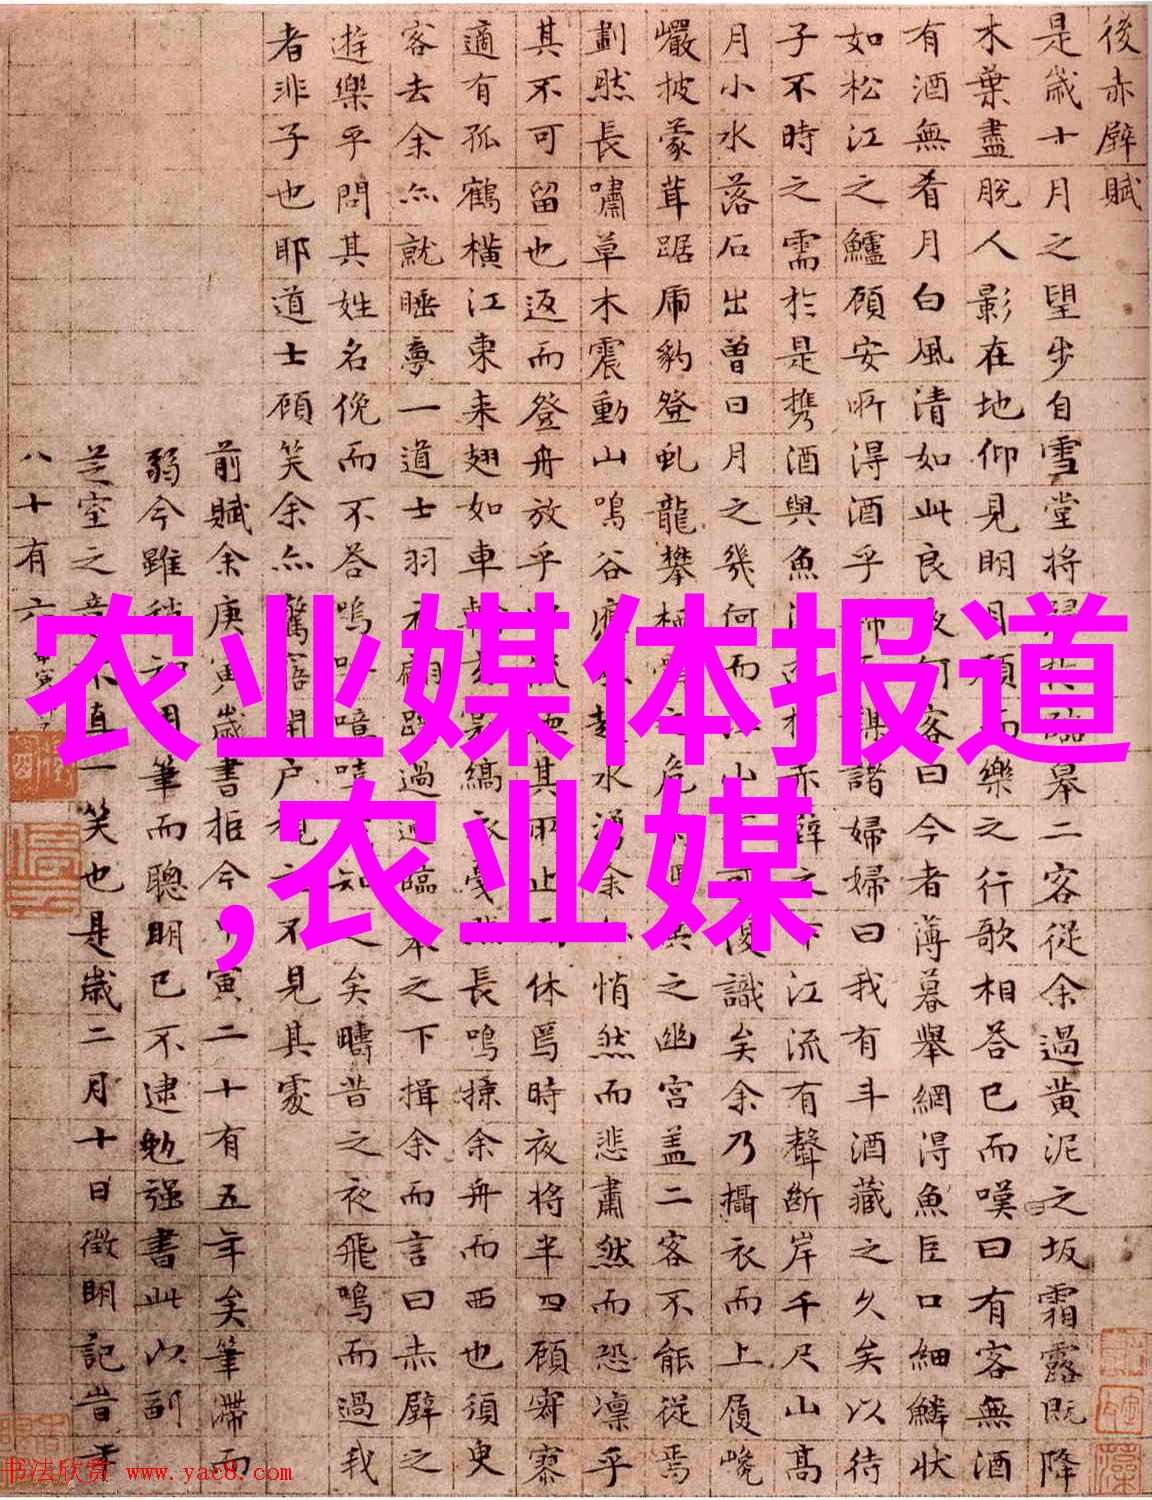 後赤壁賦
是歲十月之望步自雪堂將歸於臨皋二客從余過黃泥之坂霜露既降
木葉盡脫人影在地仰見明月顧而樂之行歌相答已而嘆曰有客無酒
有酒無肴月白風清如此良夜何客曰今者薄暮舉網得魚巨口細鱗狀
如松江之鱸顧安所得酒乎歸而謀諸婦婦曰我有斗酒藏之久矣以待
子不時之需於是携酒與魚於赤壁之下江流有聲斷岸千尺山高
月小水落石出曾日月之幾何而江山不可復識矣余乃攝衣而上履巉
巖披蒙茸踞虎豹登虬龍攀栖鶻之危夷之幽宮盖二客不能從焉
劃然長嘯草木震動山鳴谷應起水湧余悄然而悲肅然而恐凜乎
其不可留也返而登舟放乎流聽其所止而休焉時夜將半四顧寂寥
適有孤鶴橫江東来翅如車輪玄裳縞衣戛然長鳴掠余舟而西也須臾
客去余亦就睡夢一道士羽衣翩躚過過臨皋之下揖余而言曰赤壁之
遊樂乎問其姓名俛而不答嗚呼噫嘻知之矣疇昔之夜飛鳴而過我
者非子也耶道士顧笑余亦驚寤開戶視之不見其處
前賦余庚寅歲書拒今甲寅二十有五年矣筆滯而
弱今雖稍知用筆而聰明已不逮勉强書此以副
芝室之意不直一笑也是歲二月十日徵明記旹年
八十有六
农业媒体报道
,农业媒
书法欣赏 www.yac8.com